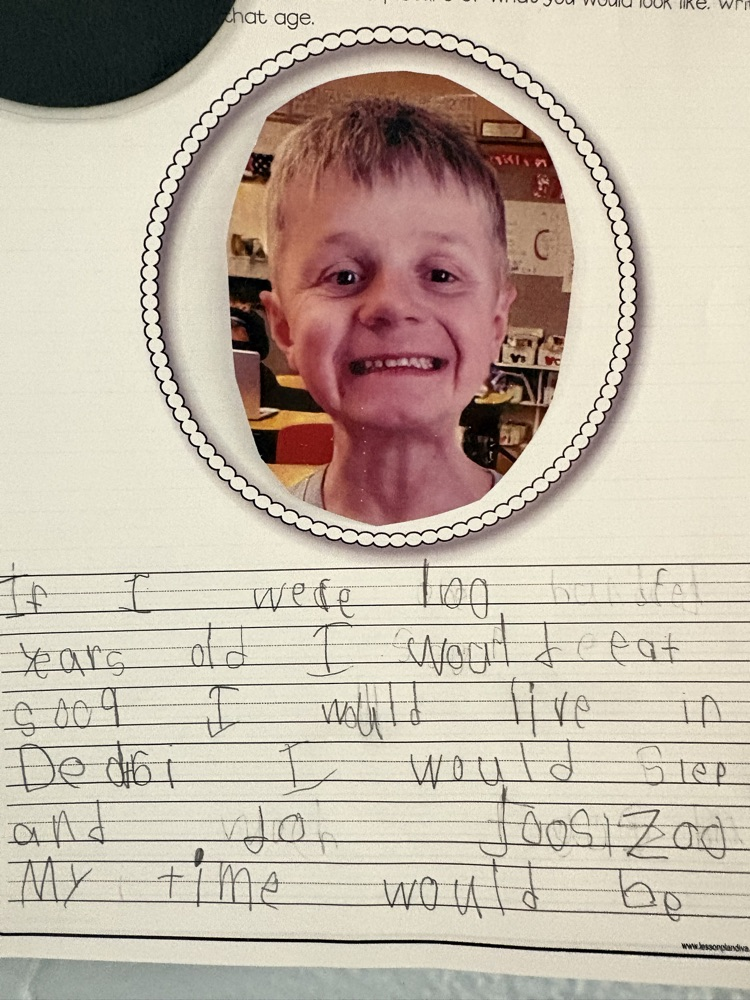 what you would look like.
that age.
If I were 100
years old I would eat
soop I would live in
I would Slep
and
My time would be
www.lessonplandiva.